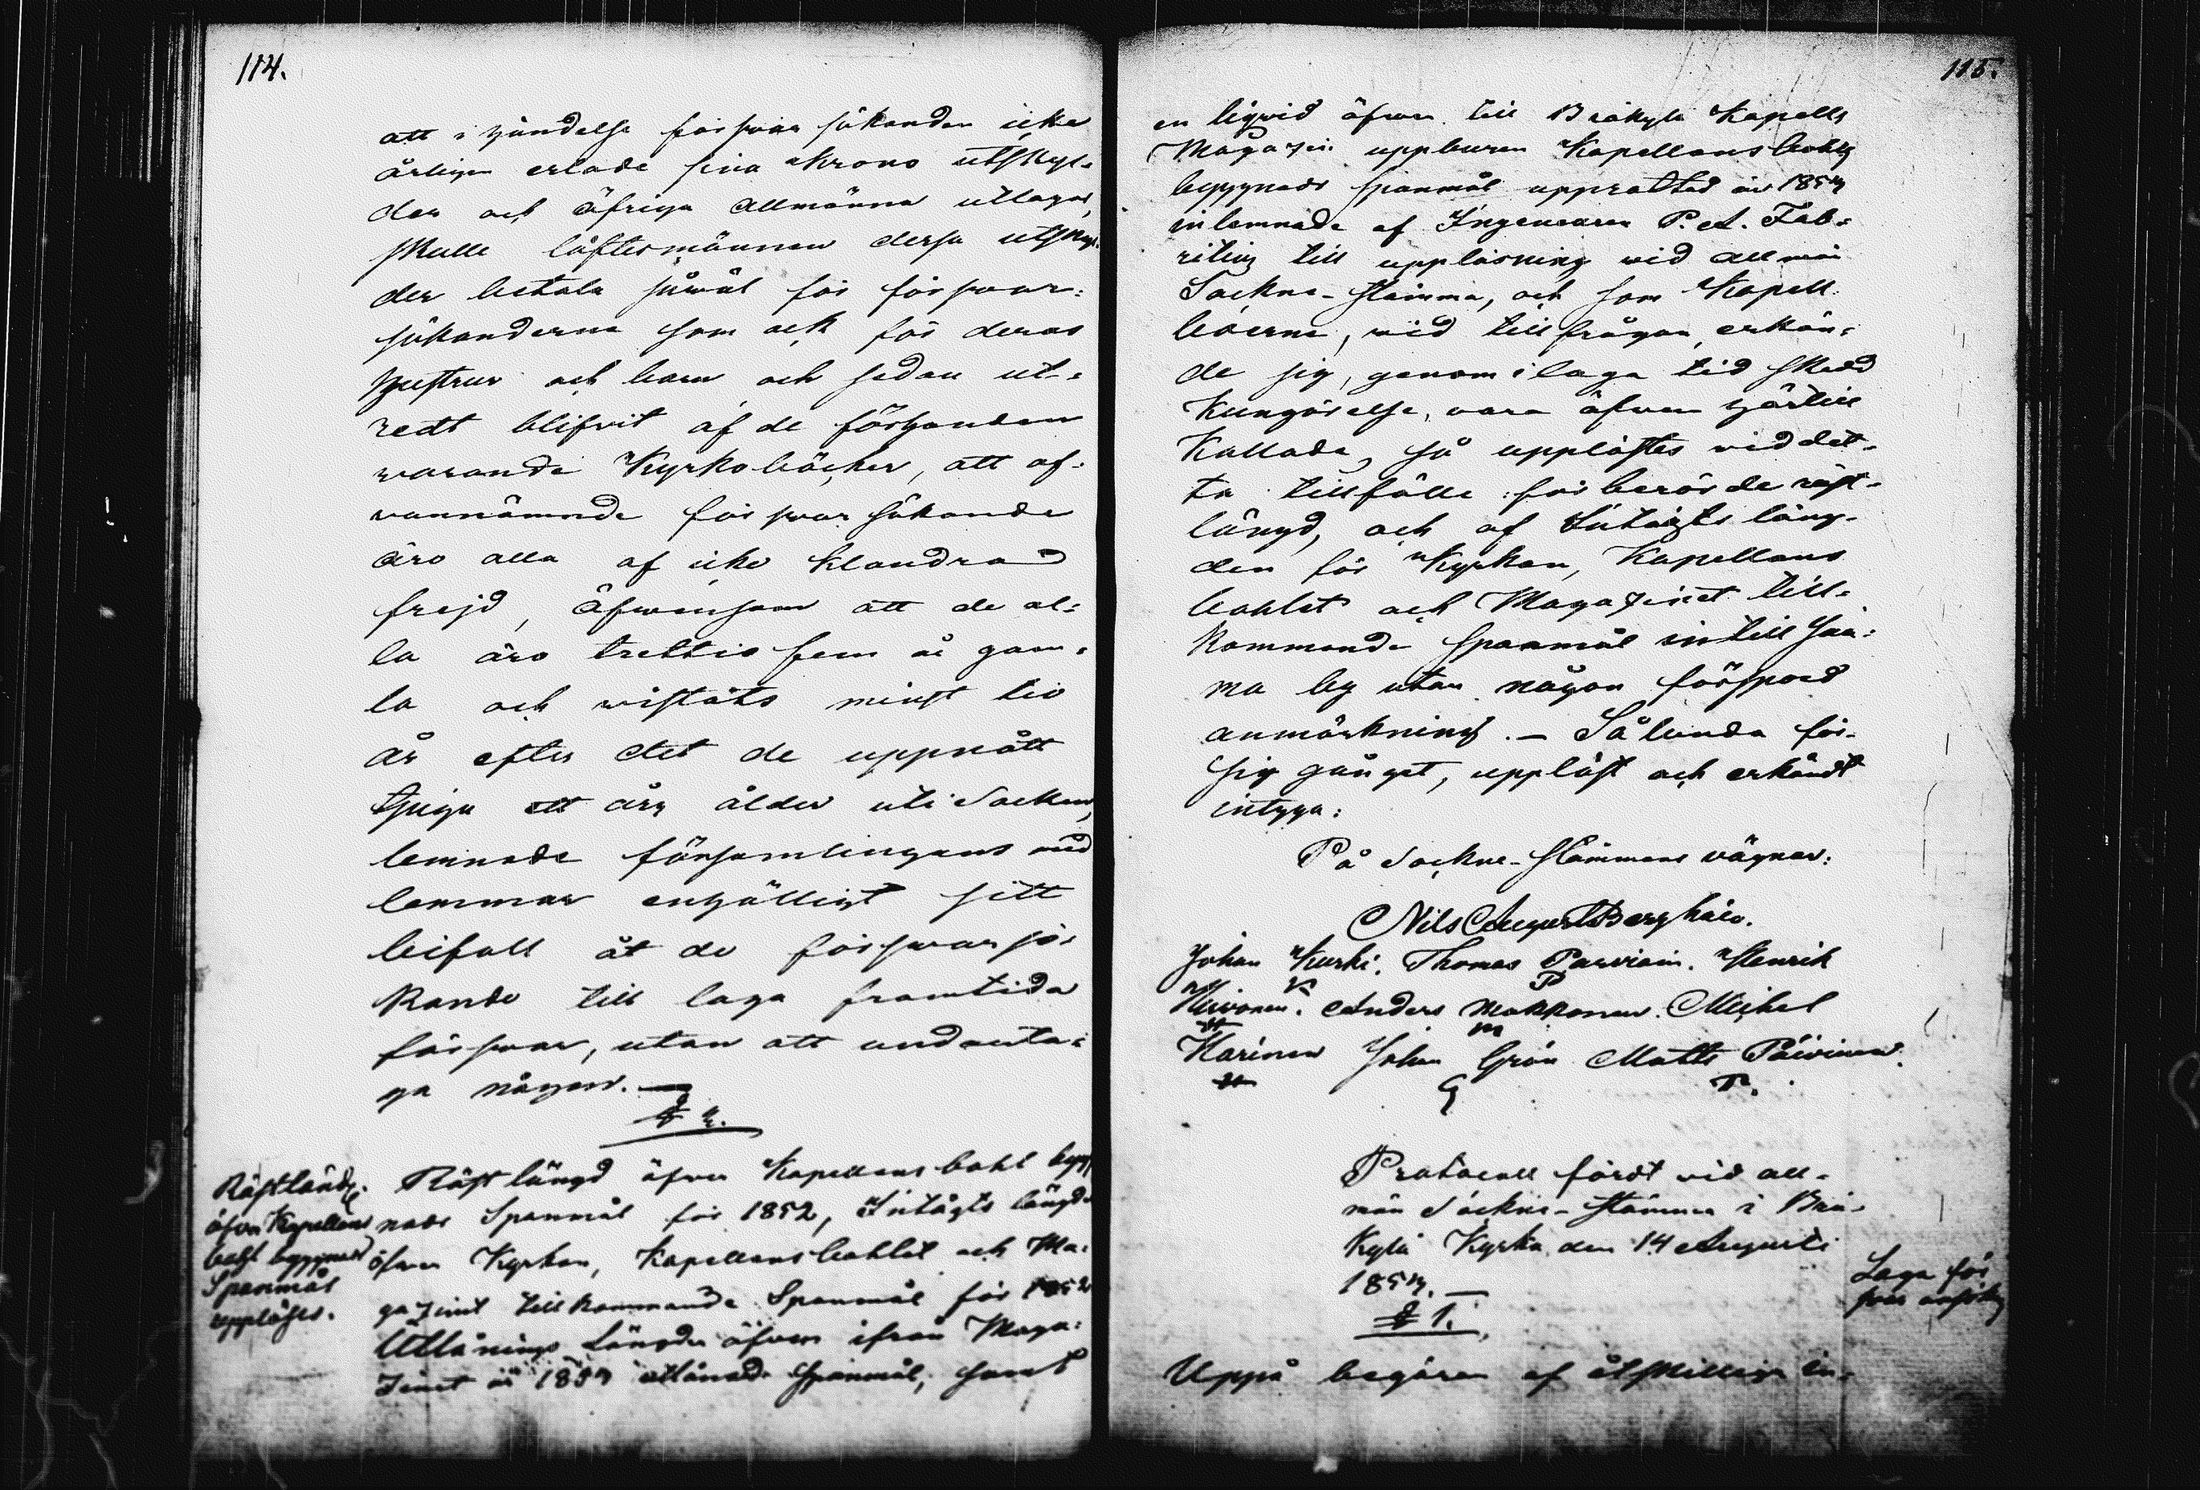 114.
att i händelse försvar sökanden icke
årligen erlade sina Krono utskyl-
der och öfriga allmänna utlagor,
skulle löftesmännen dessa utskyl-
der betala såwäl för försvar-
sökanderna som ock för deras
hustrur och barn och sedan ut-
redt blifvit af de förhanden
warande Kyrkoböcker, att of-
vannämnde försvar sökande
äro alla af icke klandrad
frejd, äfwensom att de al-
la äro trettio fem år gam-
la och wistats minst tio
år efter det de uppnått
tjugu ett års ålder uti Socknen,
lemnade församlingens med
lemmar enhälligt sitt
bifall åt de försvarsö-
kande till laga framtida
försvar, utan att undanta-
ga någon. —
§ 2.
Röstlängd
öfver Kapellans
bohl byggnads
Spanmål
upplästes.
Röst längd öfver Kapellans bohl bygg
nads Spanmål för 1852, Intägts längder
öfver Kyrkan, Kapellansbohlet och Ma-
gazinet tillkommande Spanmål för 1852
Utlånings Längder öfver ifrån Maga-
zinet år 1853 utlånad Spanmål, samt
115.
en liqvid öfwer till Bräkylä Kapells
Magazin uppburen Kapellansbohls
byggnads spanmål upprättad år 1853
inlemnade af Ingenieuren P. A. Fab-
ritius till uppläsning wid allmän
Sockne-stämma, och som Kapell-
boerne, wid tillfrågan, erkän-
de sig, genom i laga tid skedd
Kungörelse, vara äfwen härtill
Kallade, så upplästes wid det-
ta tillfälle förberörde röst-
längd, och af Intägts läng-
den för Kyrkan, Kapellans
bohlet och Magazinet till-
kommande Spanmål intill Saa-
ma by utan någon förspord
anmärkning. — Sålunda för-
sig gånget, uppläst och erkändt
intyga:
På Sockne-stämmans vägnar:
Nils August Bergh
Johan Kurki. Thomas Parviain. Henrik
K P
Hirvonen. Anders Makkonen. Michel
H M
Karinen Johan Grön Matts Päivinen.
G P.
Protocoll fördt vid all-
män Sockne-stämma i Brä-
Kylä Kyrka den 14 Augusti
1853. —
§ 1.
Laga för
svar ansökn
Uppå begäran af åtskillige in-